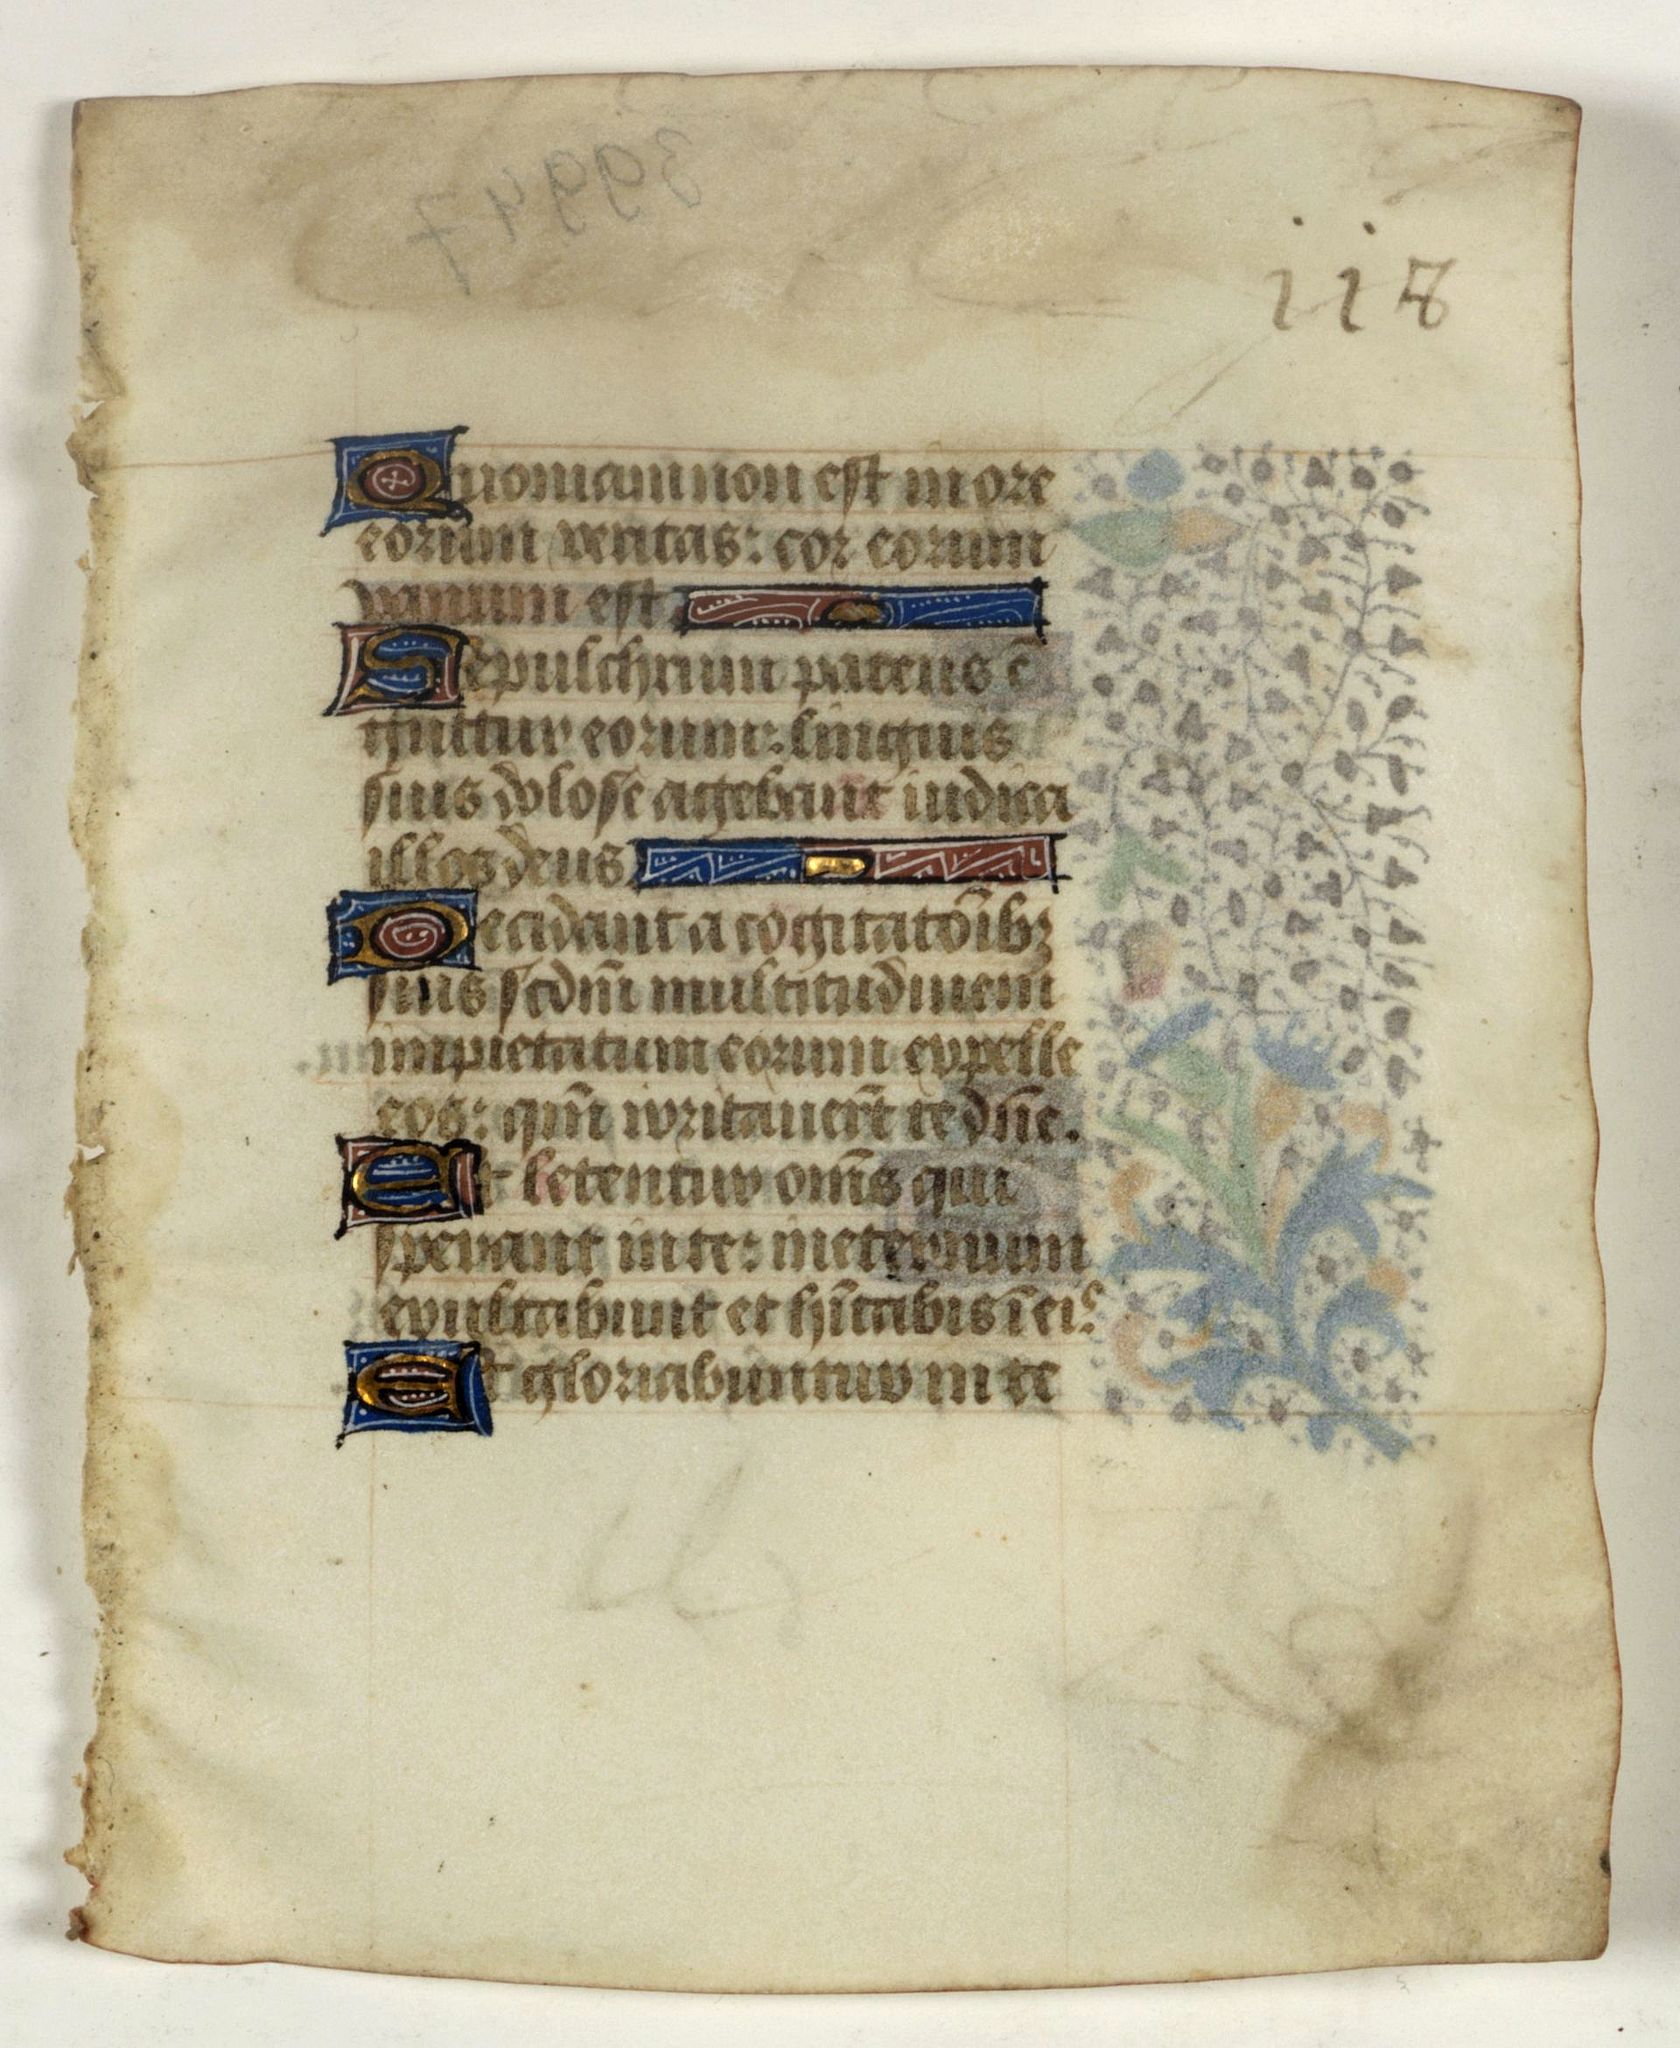 39947
118
Quoniam non est in ore
eorum veritas: cor eorum
vanum est
Sepulchrum patens ē
guttur eorum: linguis
suis dolose agebant iudica
illos deus
Decidant a cogitatōibꝫ
suis scdm̄ multitudinem
impietatum eorum expelle
eos: qm̄ irritauer̄t te dn̄e.
Et letentur om̄s qui
sperant in te: in eternum
exultabunt et hītabis ī eis
Et gloriabuntur in te